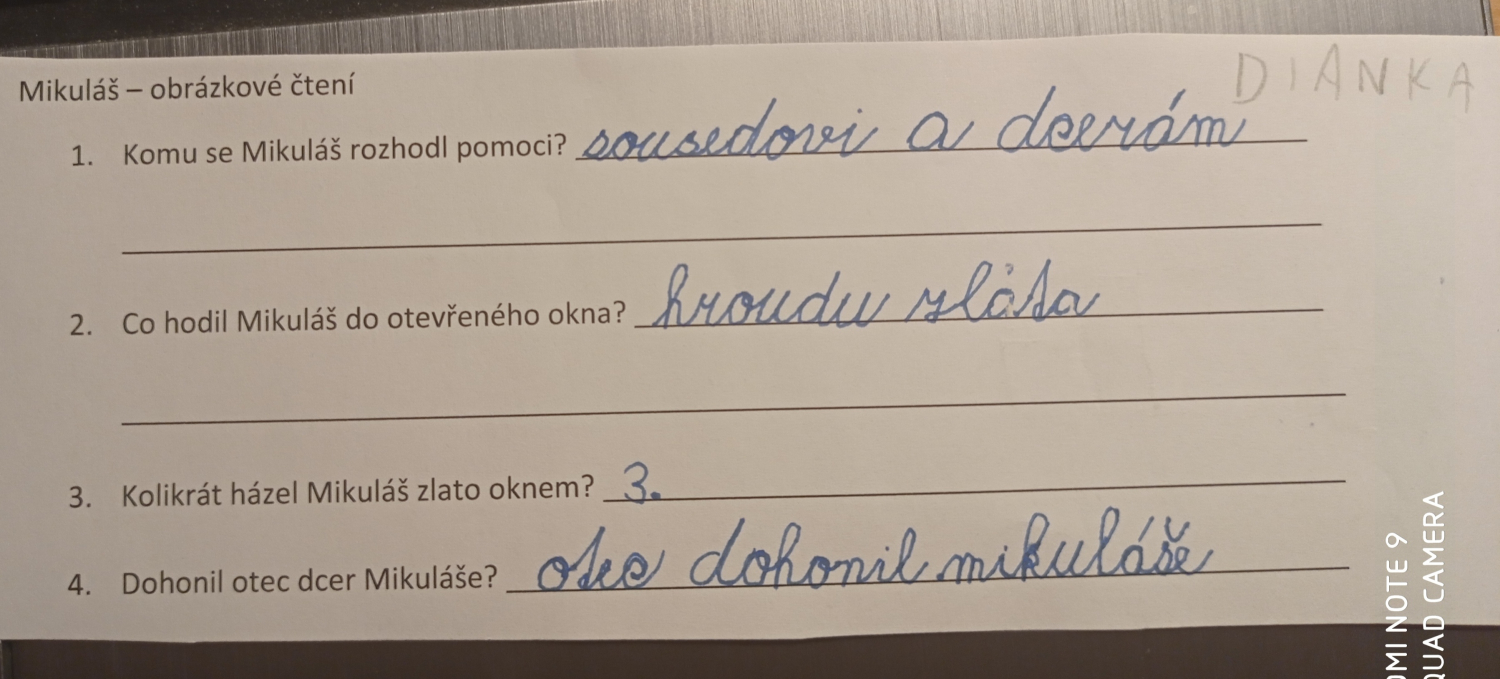 DIANKA
Mikuláš – obrázkové čtení
1. Komu se Mikuláš rozhodl pomoci? sousedovi a dcerám
2. Co hodil Mikuláš do otevřeného okna? hroudu zláta
3. Kolikrát házel Mikuláš zlato oknem? 3.
4. Dohonil otec dcer Mikuláše? otec dohonil mikuláše
OMI NOTE 9
QUAD CAMERA